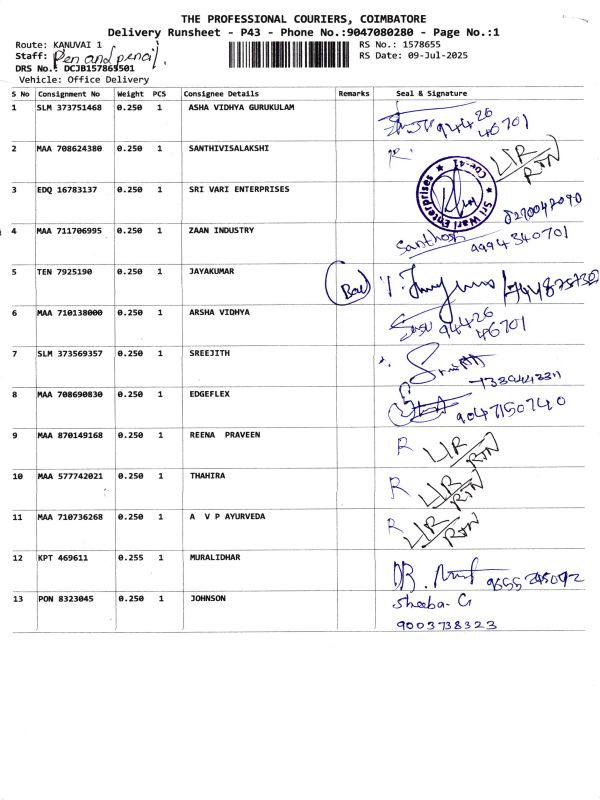 THE PROFESSIONAL COURIERS, COIMBATORE
Delivery Runsheet - P43 - Phone No.:9047080280 - Page No.:1
Route: KANUVAI 1 RS No.: 1578655
Staff: Pen and pencil RS Date: 09-Jul-2025
DRS No.: DCJB157865501
Vehicle: Office Delivery
S No Consignment No Weight PCS Consignee Details Remarks Seal & Signature
1 SLM 373751468 0.250 1 ASHA VIDHYA GURUKULAM 94426
46701
2 MAA 708624380 0.250 1 SANTHIVISALAKSHI R LIR
RTN
3 EDQ 16783137 0.250 1 SRI VARI ENTERPRISES Sri Vari Enterprises
4 MAA 711706995 0.250 1 ZAAN INDUSTRY Santhosh
9994340701
5 TEN 7925190 0.250 1 JAYAKUMAR
6 MAA 710138000 0.250 1 ARSHA VIDHYA 94426
46701
7 SLM 373569357 0.250 1 SREEJITH
8 MAA 708690830 0.250 1 EDGEFLEX 9047150740
9 MAA 870149168 0.250 1 REENA PRAVEEN R LIR
RTN
10 MAA 577742021 0.250 1 THAHIRA R LIR
RTN
11 MAA 710736268 0.250 1 A V P AYURVEDA R LIR
RTN
12 KPT 469611 0.255 1 MURALIDHAR
13 PON 8323045 0.250 1 JOHNSON Sheeba. G
9003738323